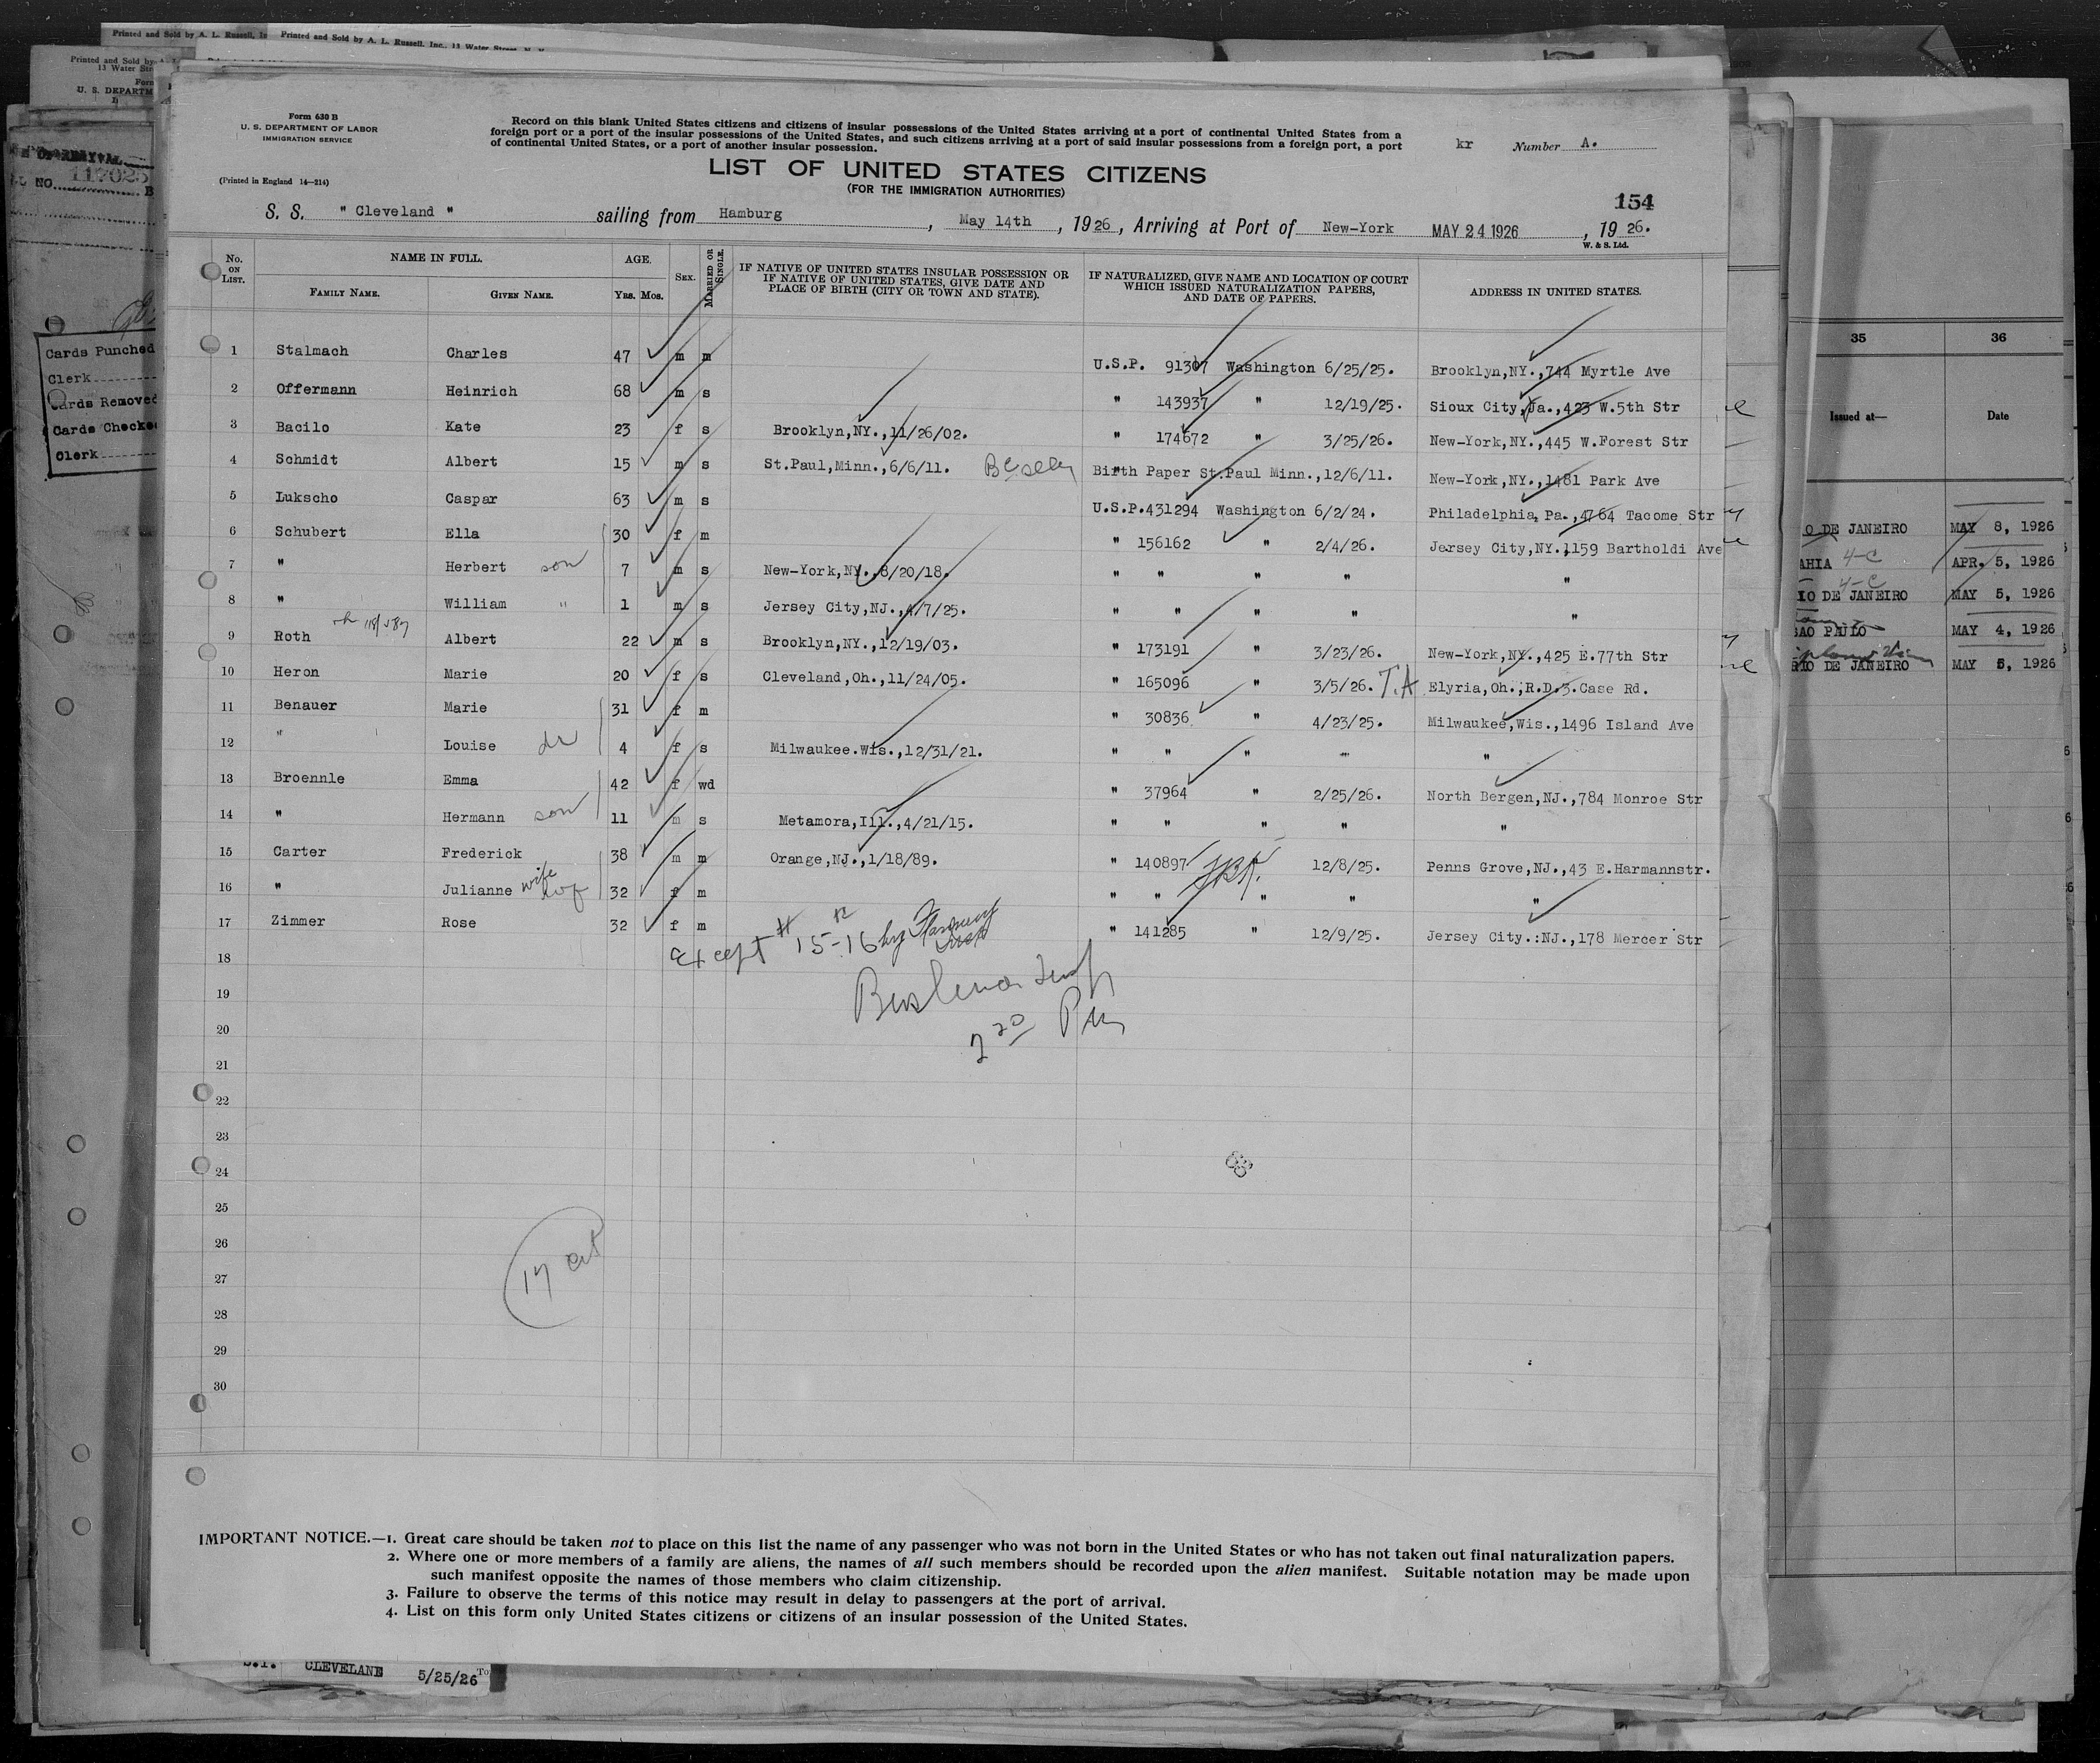 Printed and Sold by A. L. Russell, Printed and Sold by A. L. Russell, Inc., 13 Water Street, N. Y.
Printed and Sold by
13 Water
Form
U. S. DEPARTM
117025
NO.
B
Cards Punched
Clerk
Cards Removed
Cards Checked
Clerk
Form 630 B
U. S. DEPARTMENT OF LABOR
IMMIGRATION SERVICE
(Printed in England 14—214)
Record on this blank United States citizens and citizens of insular possessions of the United States arriving at a port of continental United States from a
foreign port or a port of the insular possessions of the United States, and such citizens arriving at a port of said insular possessions from a foreign port, a port
of continental United States, or a port of another insular possession.
kr Number A.
LIST OF UNITED STATES CITIZENS
(FOR THE IMMIGRATION AUTHORITIES)
154
S. S. " Cleveland " sailing from Hamburg, May 14th, 1926, Arriving at Port of New-York MAY 24 1926, 1926.
W. & S. Ltd.
No. ON LIST. NAME IN FULL. AGE. SEX. MARRIED OR SINGLE. IF NATIVE OF UNITED STATES INSULAR POSSESSION OR IF NATIVE OF UNITED STATES, GIVE DATE AND PLACE OF BIRTH (CITY OR TOWN AND STATE). IF NATURALIZED, GIVE NAME AND LOCATION OF COURT WHICH ISSUED NATURALIZATION PAPERS, AND DATE OF PAPERS. ADDRESS IN UNITED STATES.
FAMILY NAME. GIVEN NAME. YRS. MOS.
1 Stalmach Charles 47 m m U.S.P. 91307 Washington 6/25/25. Brooklyn,NY.,744 Myrtle Ave
2 Offermann Heinrich 68 m s " 143937 " 12/19/25. Sioux City,Ja.,423 W.5th Str
3 Bacilo Kate 23 f s Brooklyn,NY.,11/26/02. " 174672 " 3/25/26. New-York,NY.,445 W.Forest Str
4 Schmidt Albert 15 m s St.Paul,Minn.,6/6/11. Birth Paper St.Paul Minn.,12/6/11. New-York,NY.,1481 Park Ave
5 Lukscho Caspar 63 m s U.S.P.431294 Washington 6/2/24. Philadelphia, Pa.,4764 Tacome Str
6 Schubert Ella 30 f m " 156162 " 2/4/26. Jersey City,NY.,159 Bartholdi Ave
7 " Herbert son 7 m s New-York,NY.,8/20/18. " " " " "
8 " William " 1 m s Jersey City,NJ.,4/7/25. " " " " "
9 Roth Albert 22 m s Brooklyn,NY.,12/19/03. " 173191 " 3/23/26. New-York,NY.,425 E.77th Str
10 Heron Marie 20 f s Cleveland,Oh.,11/24/05. " 165096 " 3/5/26. T.A Elyria,Oh.,R.D.3.Case Rd.
11 Benauer Marie 31 f m " 30836 " 4/23/25. Milwaukee,Wis.,1496 Island Ave
12 " Louise dr 4 f s Milwaukee.Wis.,12/31/21. " " " " "
13 Broennle Emma 42 f wd " 37964 " 2/25/26. North Bergen,NJ.,784 Monroe Str
14 " Hermann son 11 m s Metamora,Ill.,4/21/15. " " " " "
15 Carter Frederick 38 m m Orange,NJ.,1/18/89. " 140897 12/8/25. Penns Grove,NJ.,43 E.Harmannstr.
16 " Julianne wife 32 f m " " " " "
17 Zimmer Rose 32 f m " 141285 " 12/9/25. Jersey City.:NJ.,178 Mercer Str
Except # 15-16 by
18
19
20
2 20 Pm
21
22
23
24
25
26
27
28
29
30
17 cit
IMPORTANT NOTICE.—1. Great care should be taken not to place on this list the name of any passenger who was not born in the United States or who has not taken out final naturalization papers.
2. Where one or more members of a family are aliens, the names of all such members should be recorded upon the alien manifest. Suitable notation may be made upon
such manifest opposite the names of those members who claim citizenship.
3. Failure to observe the terms of this notice may result in delay to passengers at the port of arrival.
4. List on this form only United States citizens or citizens of an insular possession of the United States.
CLEVELAND 5/25/26 To
35 36
Issued at— Date
O DE JANEIRO MAY 8, 1926
AHIA 4-C APR. 5, 1926
4-C
IO DE JANEIRO MAY 5, 1926
SAO PAULO MAY 4, 1926
RIO DE JANEIRO MAY 5, 1926